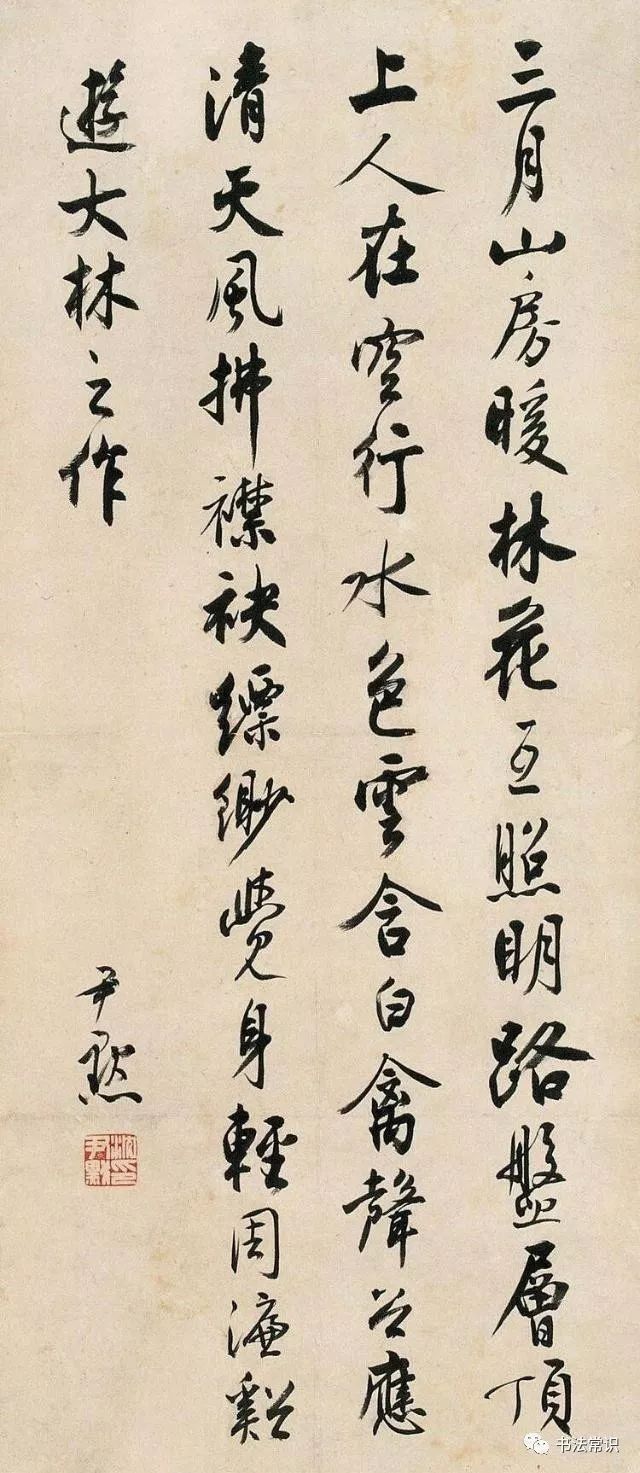 三月山房暖林花互照明路盤層頂
上人在空行水色雲含白禽聲谷應
清天風拂襟袂縹緲覺身輕周濂谿
遊大林之作
尹默
沈尹默印
书法常识